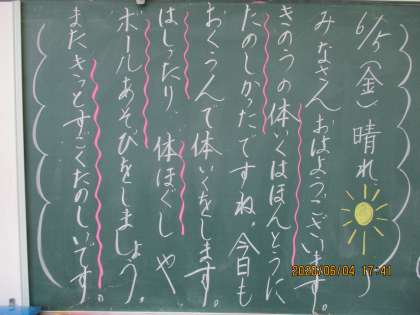 6/5(金)晴れ
みなさんおはようございます。
きのうの体いくはほんとうに
たのしかったですね。今日も
おくうんで体いくをします。
はしったり、体ほぐし や
ボールあそびをしましょう。
またきっとすごくたのしいです。
2020/06/04 17:41